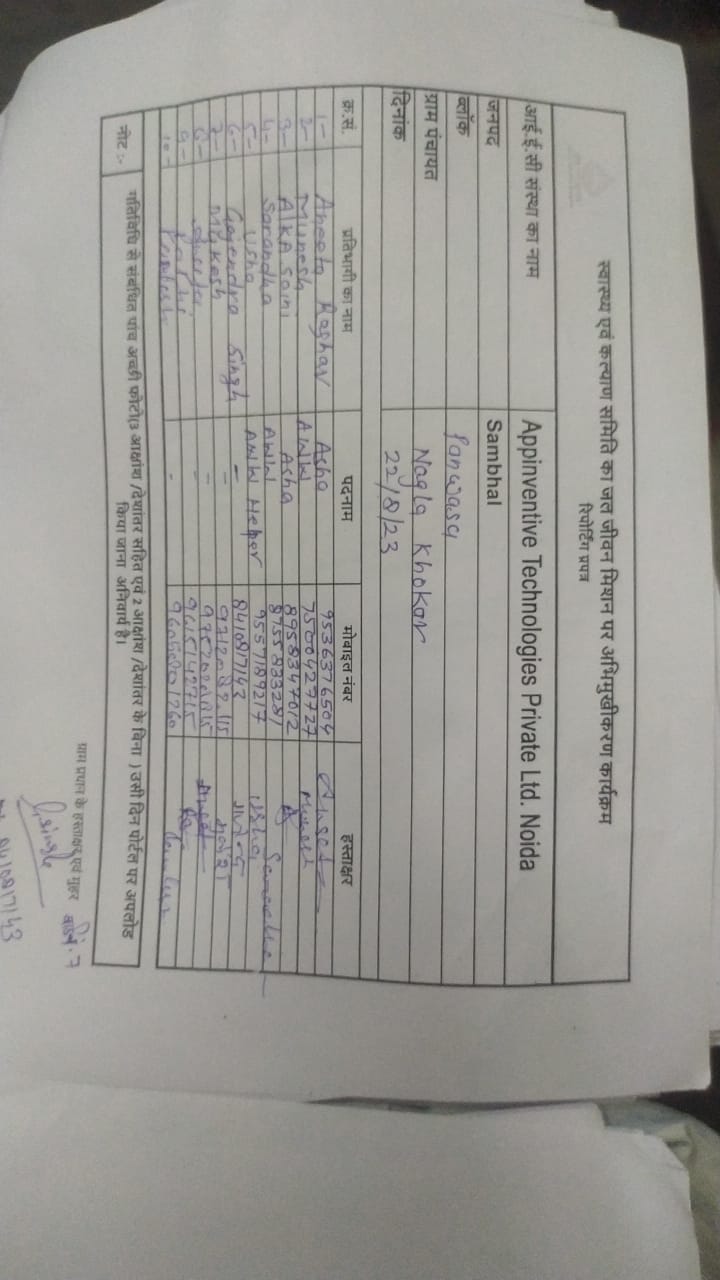 स्वास्थ्य एवं कल्याण समिति का जल जीवन मिशन पर अभिमुखीकरण कार्यक्रम
रिपोर्टिंग प्रपत्र
आई.ई.सी संस्था का नाम Appinventive Technologies Private Ltd. Noida
जनपद Sambhal
ब्लॉक Panwasa
ग्राम पंचायत Nagla Khokar
दिनांक 22/8/23
क्र.सं. प्रतिभागी का नाम पदनाम मोबाइल नंबर हस्ताक्षर
1- Aneeta Raghav Asha 9536376504
2- Munesh AWW 7500427727 Munesh
3- Alka Saini Asha 8958347012
4- Sarandha AWW 8755833281
5- Usha AWW Helper 9557189217 Usha
6- Gajendra Singh - 8410817143 गजेन्द्र
7- Mukesh -
8- -
9- - 9615142715
10- -
नोट :- गतिविधि से संबंधित पांच अच्छी फोटो(3 आक्षांश /देशांतर सहित एवं 2 आक्षांश /देशांतर के बिना ) उसी दिन पोर्टल पर अपलोड
किया जाना अनिवार्य है।
ग्राम प्रधान के हस्ताक्षर एवं मुहर